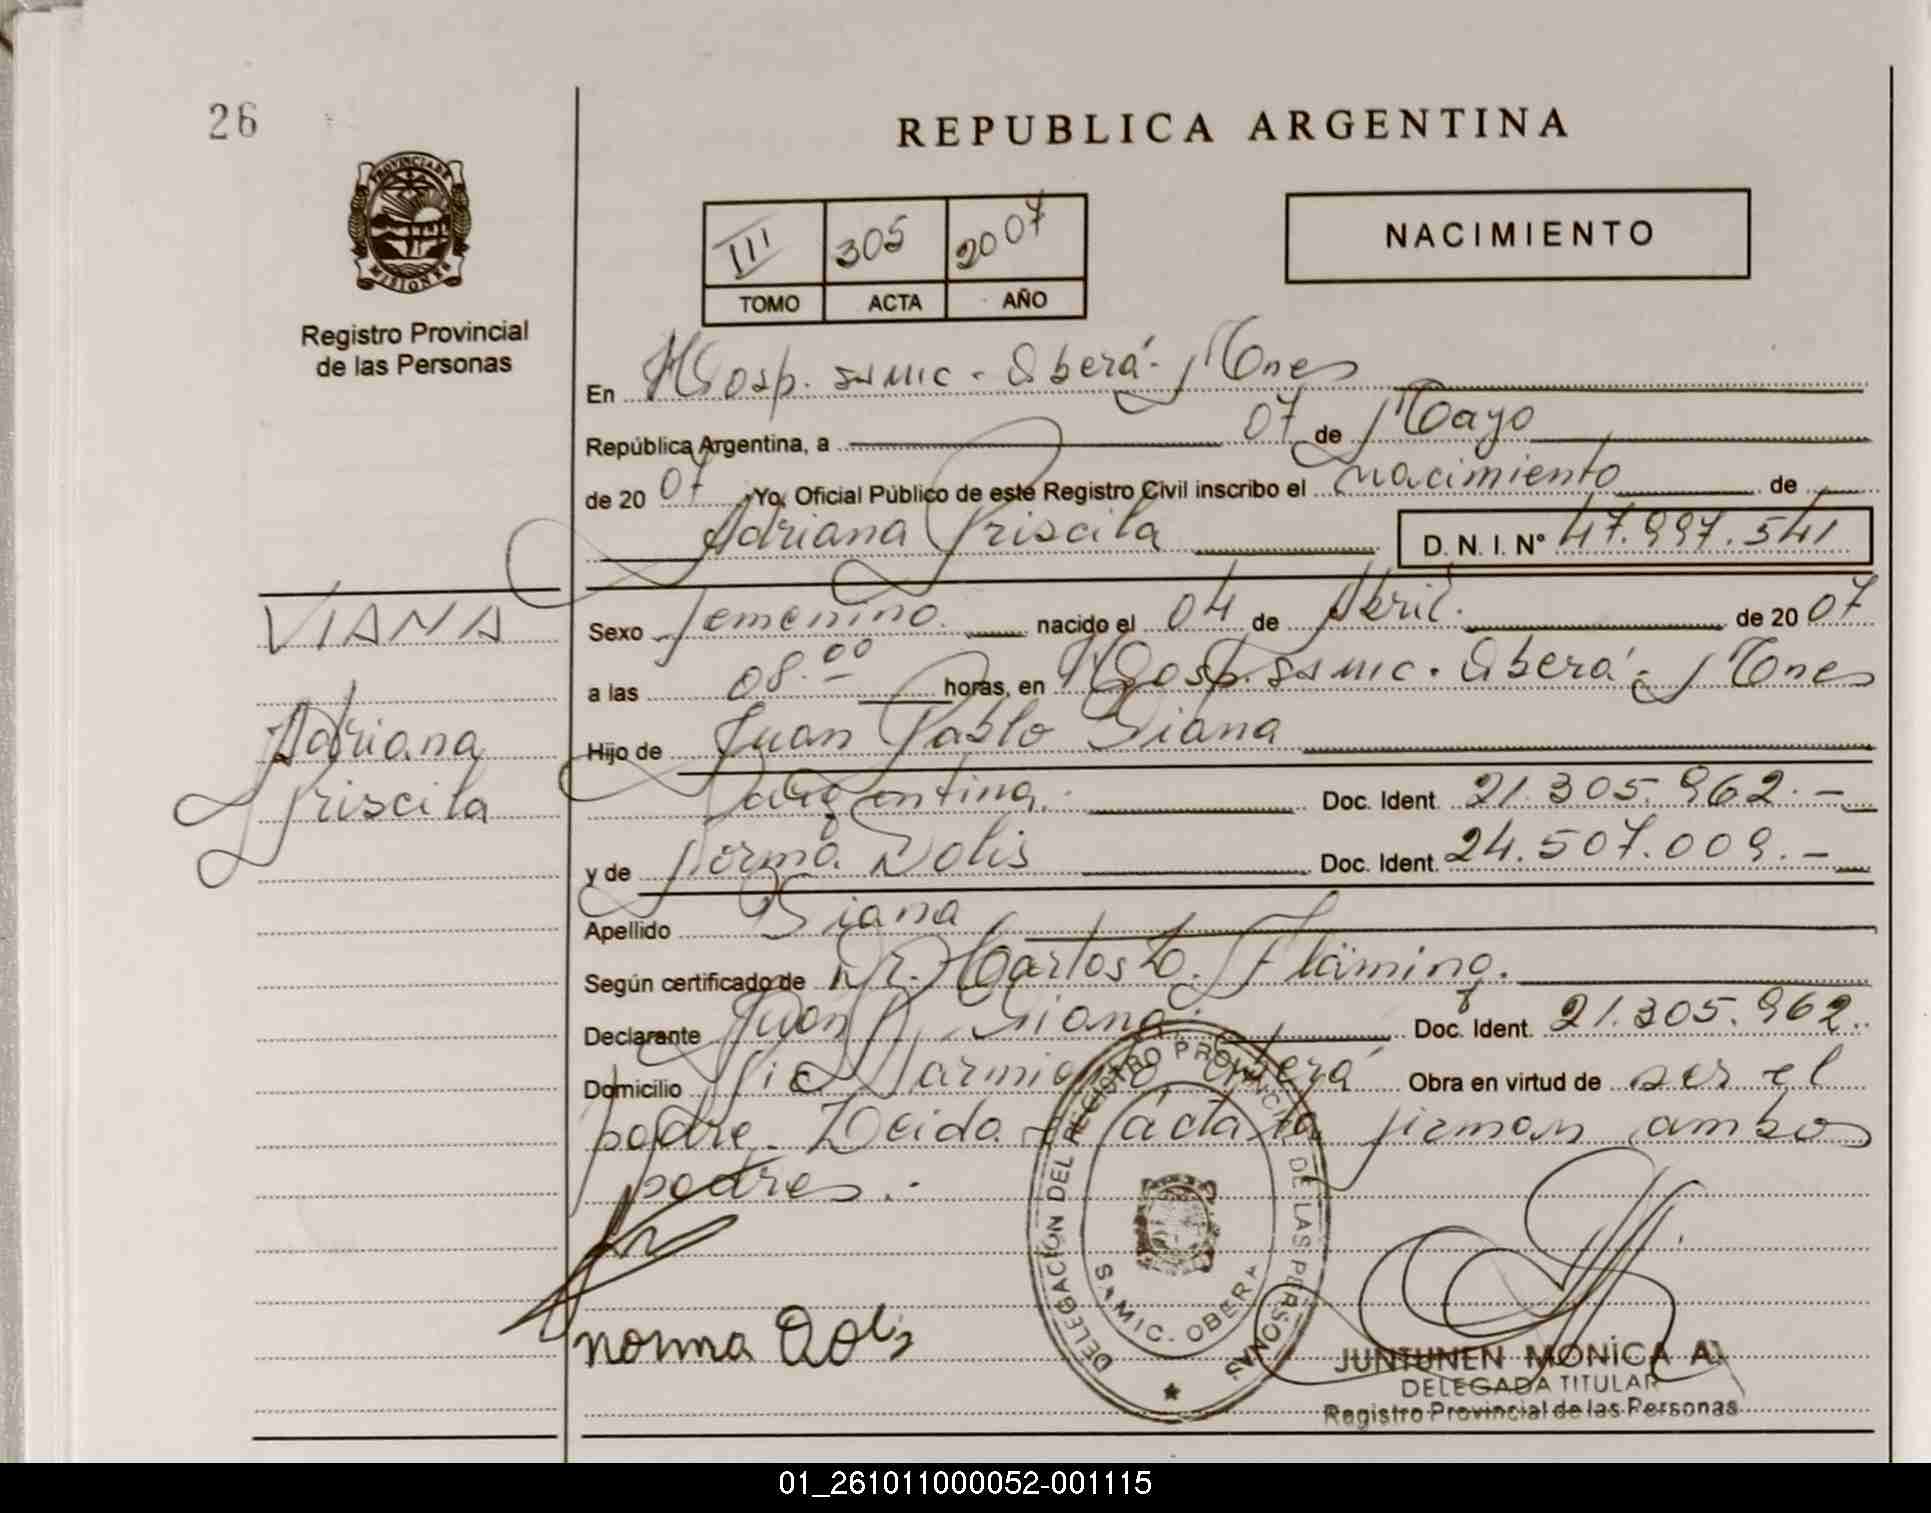 26
REPUBLICA ARGENTINA
PROVINCIA DE
MISIONES
Registro Provincial
de las Personas
III 305 2007
TOMO ACTA AÑO
NACIMIENTO
En Hosp. SAMIC. Oberá. Mnes
República Argentina, a 07 de Mayo
de 2007 Yo, Oficial Público de este Registro Civil inscribo el nacimiento de
Adriana Priscila D. N. I. Nº 47.997.541
VIANA
Adriana
Priscila
Sexo femenino. nacido el 04 de Abril. de 2007
a las 08.00 horas, en Hosp. SAMIC. Oberá. Mnes
Hijo de Juan Pablo Viana
argentina. Doc. Ident. 21.305.962.-
y de Norma Dolis Doc. Ident. 24.507.009.-
Apellido Viana
Según certificado de Dr. Carlos D. Fläming.
Declarante Juan P. Viana. Doc. Ident. 21.305.962.
Domicilio Oberá Obra en virtud de ser el
padre. Leida el acta la firman ambos
padres.-
norma Dolis
DELEGACIÓN DEL REGISTRO PROVINCIAL DE LAS PERSONAS
SAMIC. OBERA
JUNTUNEN MONICA A.
DELEGADA TITULAR
Registro Provincial de las Personas
01_261011000052-001115